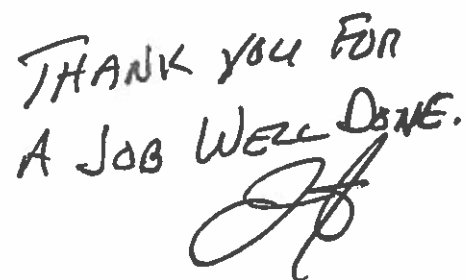 THANK YOU FOR
A JOB WELL DONE.